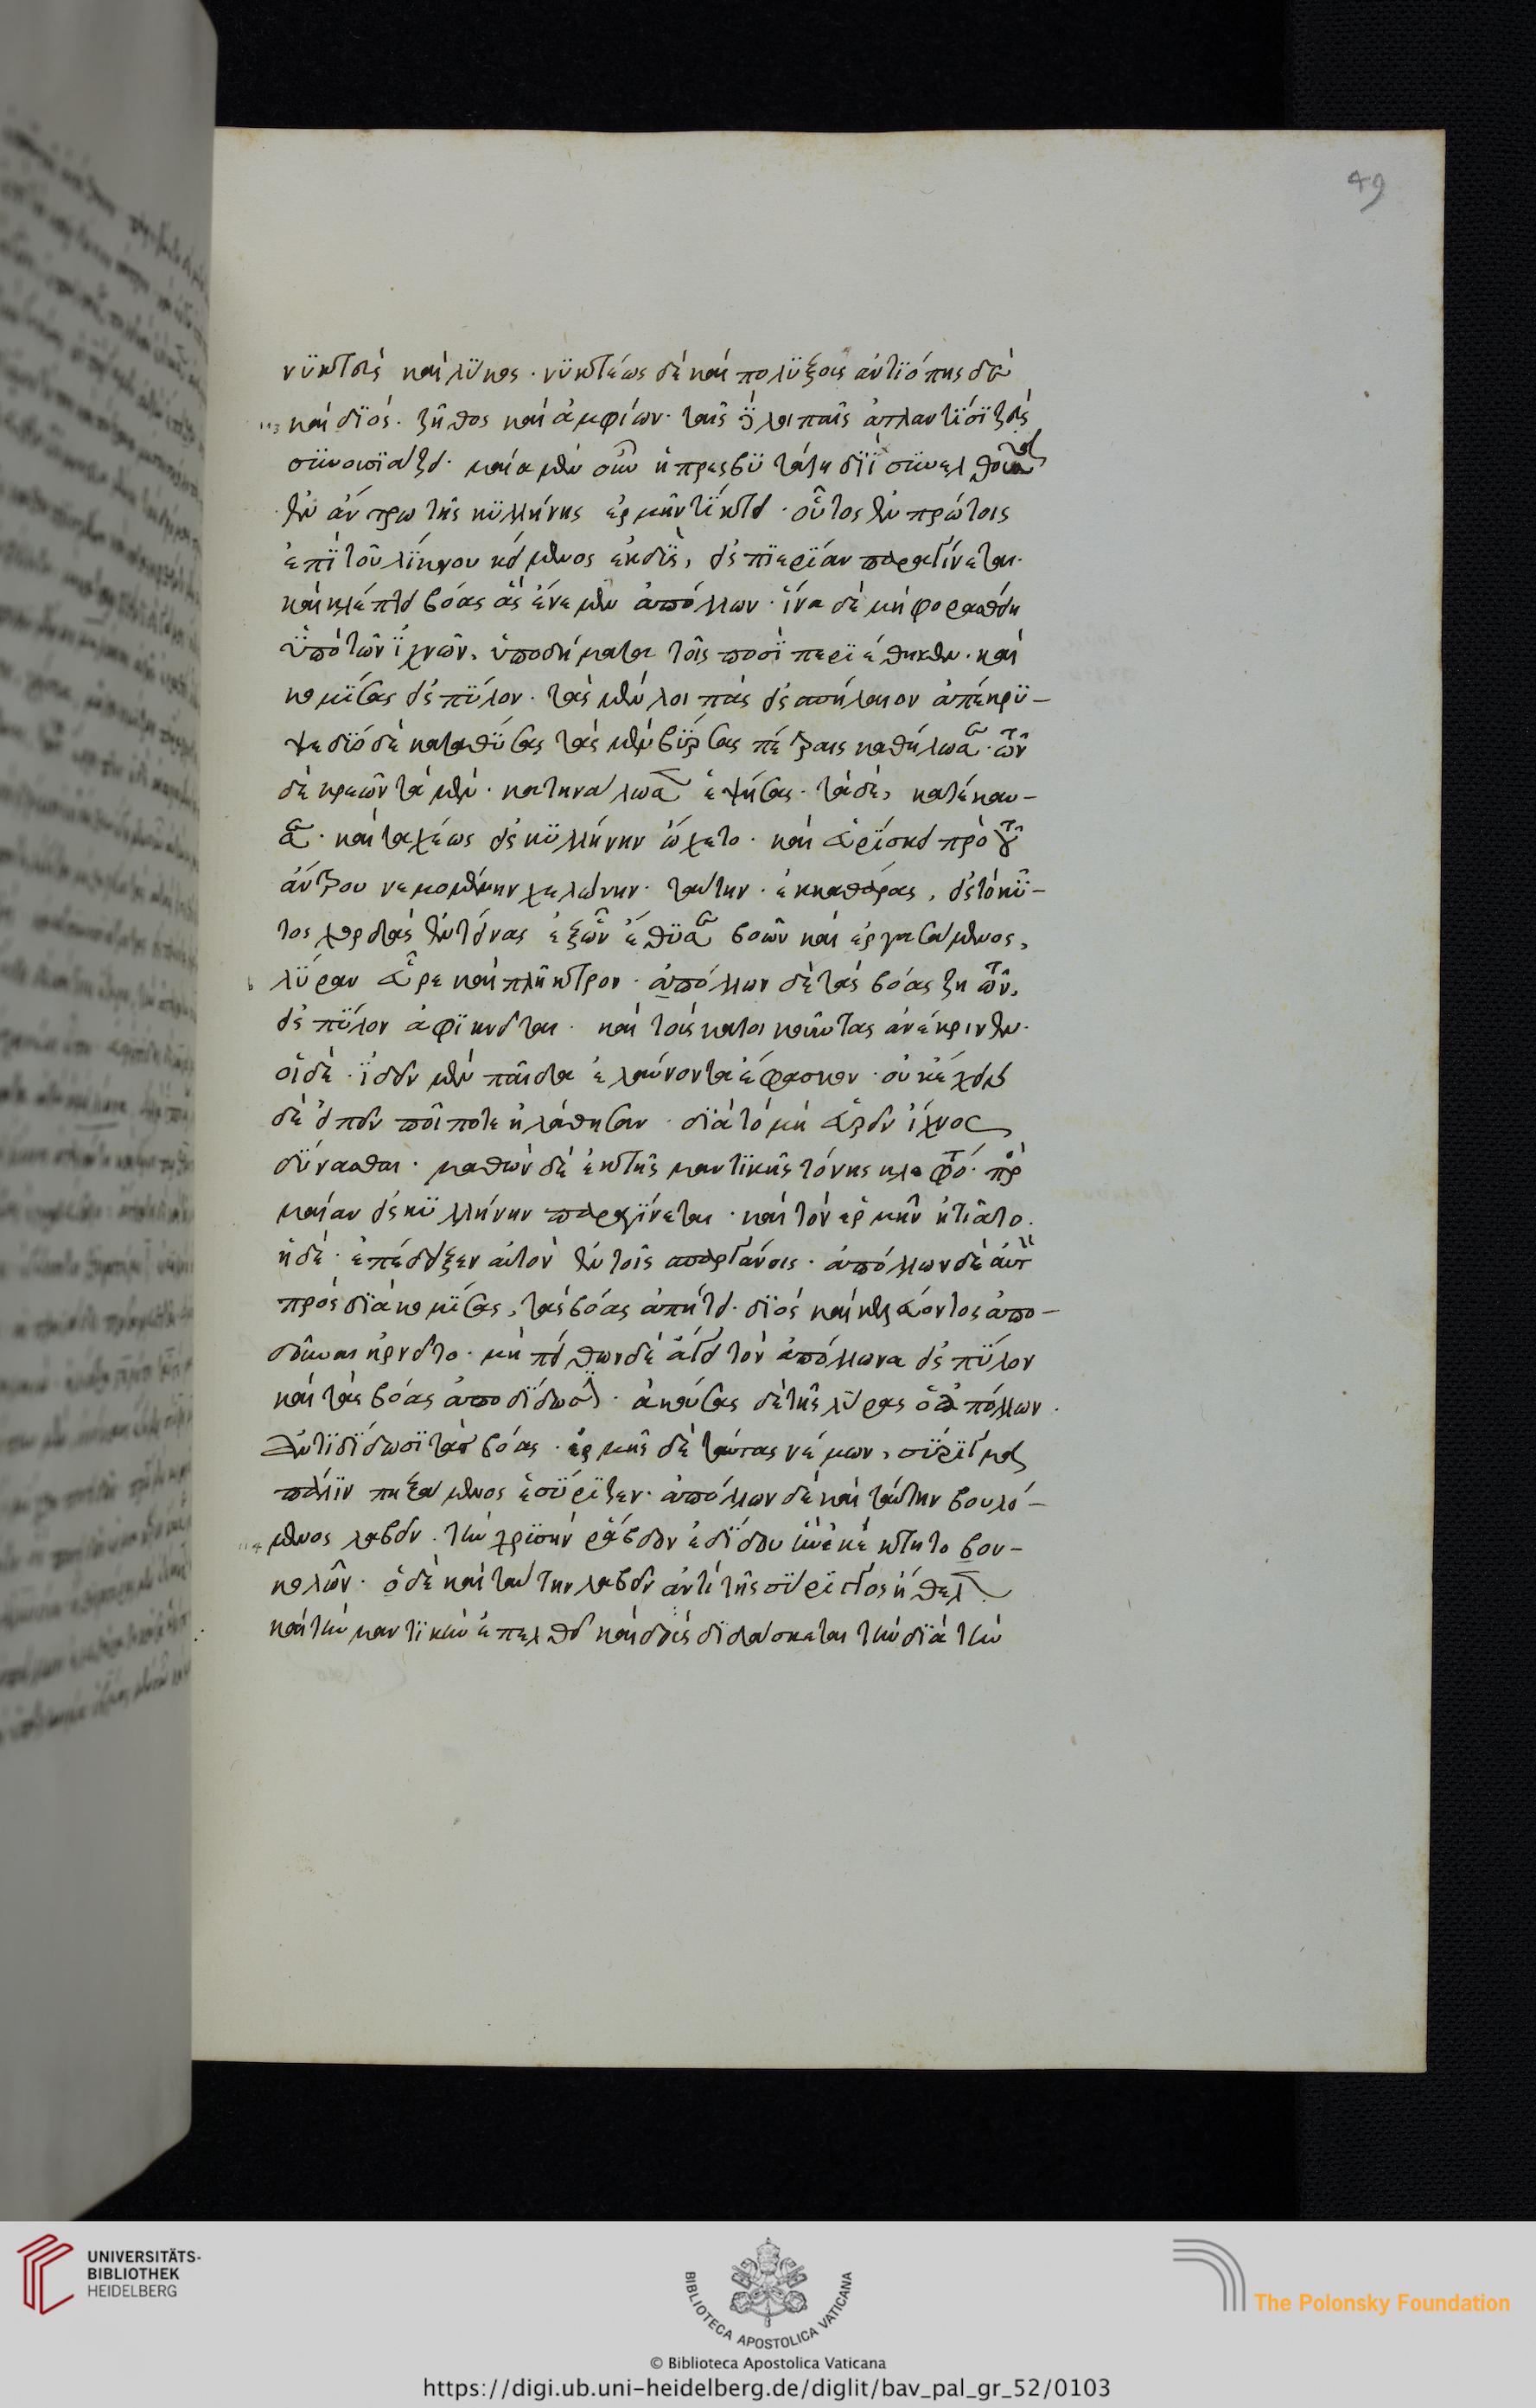 49
νϋκτεὺς καὶ λύκος · νϋκτέως δὲ καὶ πολϋξοῦς ἀντϊόπη · ἀντϊόπης δὲ
καὶ δϊὸς · ζῆθος καὶ ἀμφίων · ταῖς δὲ λοιπαῖς ἀτλαντϊσϊ ζεὺς
συνουσϊάζει · μαῖα μὲν οὖν ἡ πρεσβϋτάτη δϊῒ συνελθοῦσα
ἐν ἄντρω τῆς κϋλλήνης ἑρμῆν τΐκτει · οὗτος ἐν πρώτοις
ἐπῒ τοῦ λΐκνου κείμενος ἐκδῢς, εἰς πϊερΐαν παραγίνεται ·
καὶ κλέπτει βόας ἃς ἔνεμεν ἀπόλλων · ἵνα δὲ μὴ φοραθείη
ὑπὸ τῶν ἰχνῶν, ὑποδήματα τοῖς ποσῒ περϊέθηκεν · καὶ
κομΐσας εἰς πΰλον · τὰς μὲν λοιπὰς εἰς σπήλαιον ἀπέκρϋ-
ψε δϊό δὲ καταθΰσας τὰς μὲν βΰρσας πέτραις καθήλωσε · τῶν
δὲ κρεῶν τὰ μὲν · κατηνάλωσεν ἑψήσας · τὰ δὲ, κατέκαυ-
σε · καὶ ταχέως εἰς κϋλλήνην ὤχετο · καὶ εὑρΐσκει πρὸ τοῦ
ἄντρου νεμομένην χελώνην · ταύτην · ἐκκαθάρας, εἰς τὸ κΰ-
τος χορδὰς ἐντείνας ἐξ ὧν ἔθϋσε βοῶν καὶ ἐργασάμενος,
λΰραν εὗρε καὶ πλῆκτρον · ἀπόλλων δὲ τὰς βόας ζητῶν,
εἰς πΰλον ἀφϊκνεῖται · καὶ τοὺς κατοικοῦντας ἀνέκρινεν ·
οἱ δὲ · ἰδεῖν μὲν παῖδα ἐλαύνοντα ἔφασκον · οὐκ ἔχειν
δὲ εἰπεῖν ποῖ ποτε ἠλάθησαν · δϊὰ τὸ μὴ εὑρεῖν ἴχνος
δΰνασθαι · μαθὼν δὲ ἐκ τῆς μαντϊκῆς τὸν κεκλοφότα · πρὸς
μαῖαν εἰς κϋλλήνην παραγΐνεται · καὶ τὸν ἑρμῆν ἠτιᾶτο ·
ἡ δὲ · ἐπέδειξεν αὐτὸν ἐν τοῖς σπαργάνοις · ἀπόλλων δὲ αὐτὸν
πρὸς δΐα κομΐσας, τὰς βόας ἀπῄτει · δϊὸς καὶ κελεύοντος ἀπο-
δοῦναι ἠρνεῖτο · μὴ πείθων δὲ ἄγει τὸν ἀπόλλωνα εἰς πΰλον
καὶ τὰς βόας ἀποδΐδωσιν · ἀκούσας δὲ τῆς λΰρας ὁ ἀπόλλων ·
ἀντϊδΐδωσϊ τὰς βόας · ἑρμῆς δὲ ταύτας νέμων, σΰρϊγγα
πάλϊν πηξάμενος ἐσΰρϊζεν · ἀπόλλων δὲ καὶ ταύτην βουλό-
μενος λαβεῖν · τὴν χρϋσῆν ῥάβδον ἐδΐδου ἣν ἐκέκτητο βου-
κολῶν · ὁ δὲ καὶ ταύτην λαβεῖν ἀντὶ τῆς σΰρϊγγος ἤθελεν
καὶ τὴν μαντϊκὴν ἐπελθεῖν καὶ δοὺς διδάσκεται τὴν δϊὰ τῶν
UNIVERSITÄTS-
BIBLIOTHEK
HEIDELBERG
BIBLIOTECA APOSTOLICA VATICANA
The Polonsky Foundation
© Biblioteca Apostolica Vaticana
https://digi.ub.uni-heidelberg.de/diglit/bav_pal_gr_52/0103